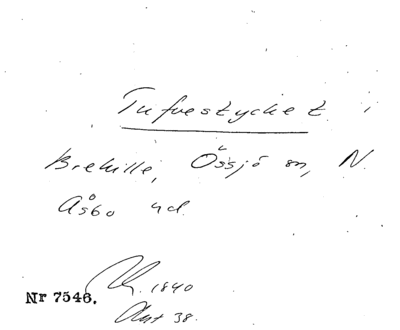 Tufvestycket
Brehille, Össjö sn, N.
Åsbo hd.
Nr 7546.
1840
Akt 38.